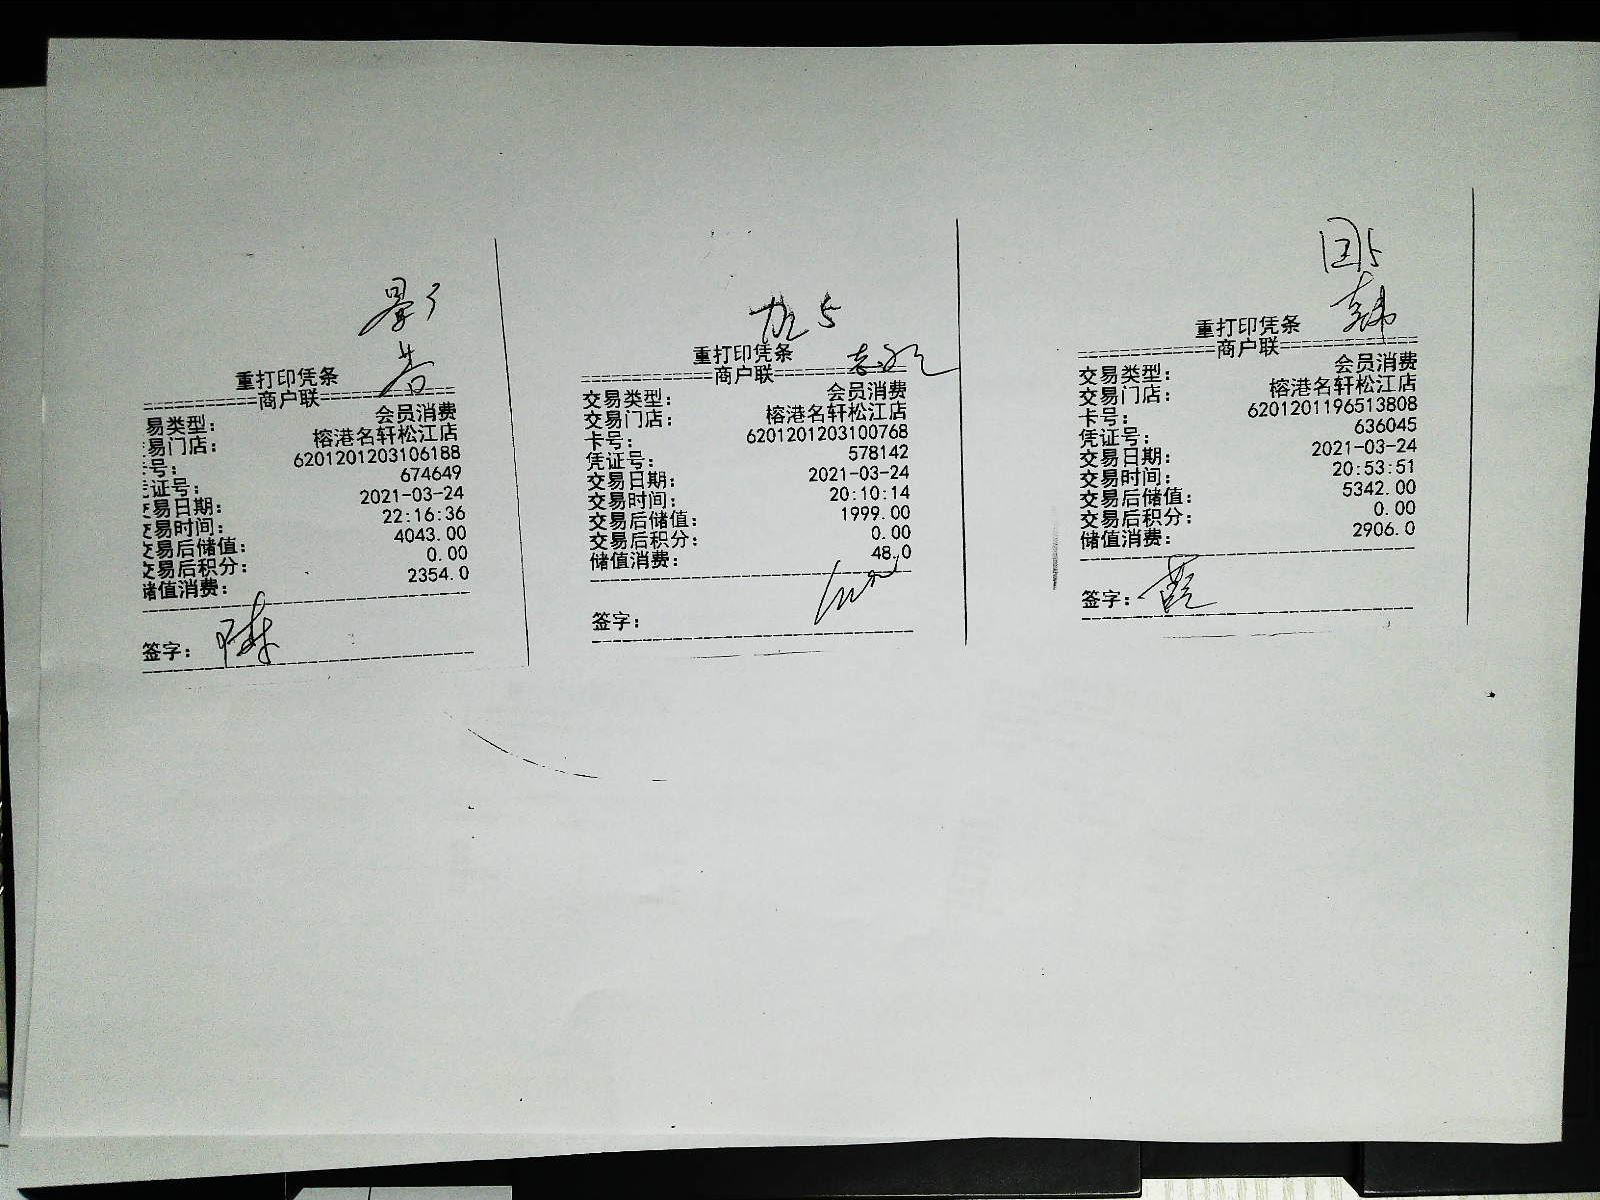 重打印凭条
===========商户联=============
易类型：
会员消费
易门店：
榕港名轩松江店
卡号：
6201201203106188
凭证号：
674649
交易日期：
2021-03-24
交易时间：
22:16:36
交易后储值：
4043.00
交易后积分：
0.00
储值消费：
2354.0
签字：
重打印凭条
=============商户联=============
交易类型：
会员消费
交易门店：
榕港名轩松江店
卡号：
6201201203100768
凭证号：
578142
交易日期：
2021-03-24
交易时间：
20:10:14
交易后储值：
1999.00
交易后积分：
0.00
储值消费：
48.0
签字：
重打印凭条
=============商户联=============
交易类型：
会员消费
交易门店：
榕港名轩松江店
卡号：
6201201196513808
凭证号：
636045
交易日期：
2021-03-24
交易时间：
20:53:51
交易后储值：
5342.00
交易后积分：
0.00
储值消费：
2906.0
签字：